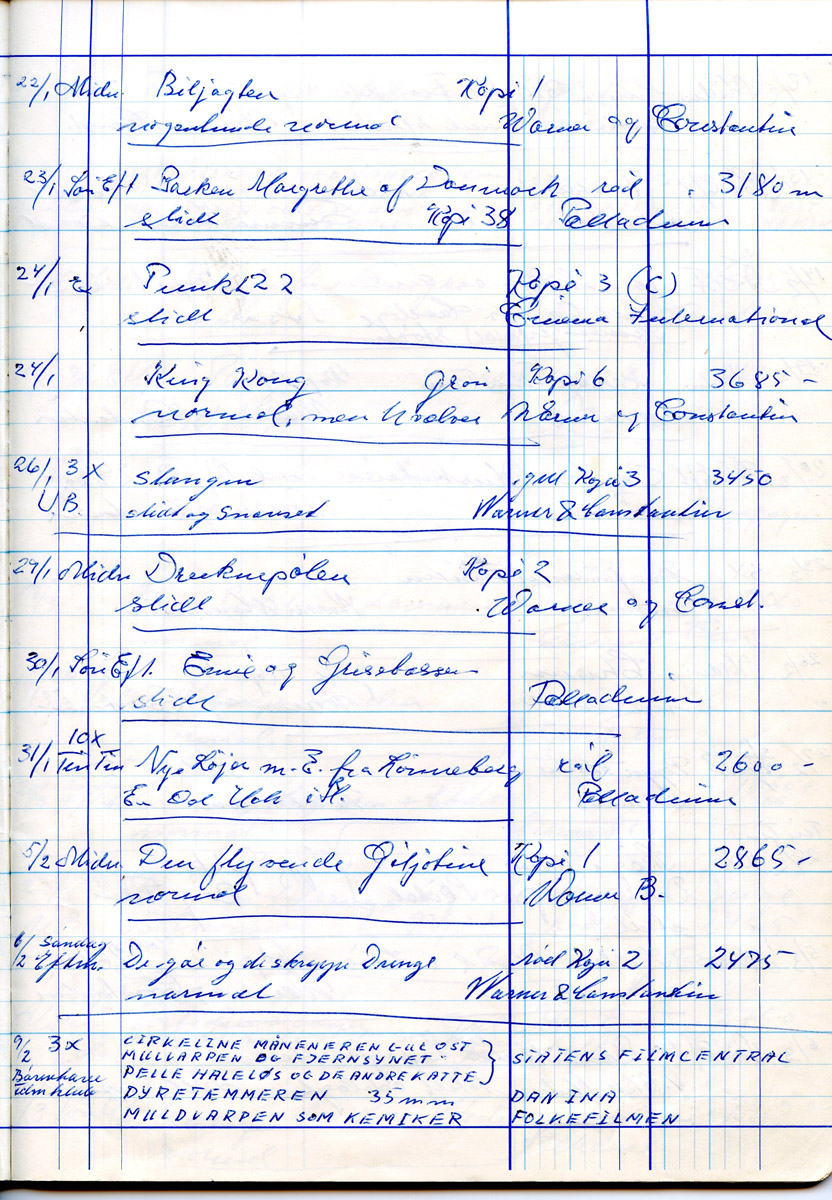 22/1 Midn. Biljagten Kopi 1
nogenlunde normal Warner og Constantin
23/1 Søn Eft Parken Margrethe af Danmark rød 3180 m
slidt Kopi 38 Palladium
24/1 Punkt 22 Kopi 3 (C)
slidt Cinema International
24/1 King Kong Grøn Kopi 6 3685 -
normal, men Warner og Constantin
26/1 3 X Slangen gul Kopi 3 3450
U.B. slidt og snavset Warner & Constantin
29/1 Midn Drucknepölen Kopi 2
slidt Warner og Const.
30/1 Søn Eft. Emil og Grisebassen
slidt Palladium
10X
31/1 Tin Tin Nye Løjer m. E. fra Lönneberg 2600 -
Palladium
5/2 Midn Den flyvende Giljotine Kopi 1 2865 -
normal Warner B.
6/2 Søndag
Eftm. De gåe og de skrappe Drenge rød Kopi 2 2475
normal Warner & Constantin
9/2 3 X CIRKELINE MÅNENEREN GUL OST
MULVARPEN OG FJERNSYNET STATENS FILMCENTRAL
PELLE HALELØS OG DE ANDRE KATTE
Børnehave
filmklub DYRETÆMMEREN 35 mm DAN INA
MULDVARPEN SOM KEMIKER FOLKEFILMEN